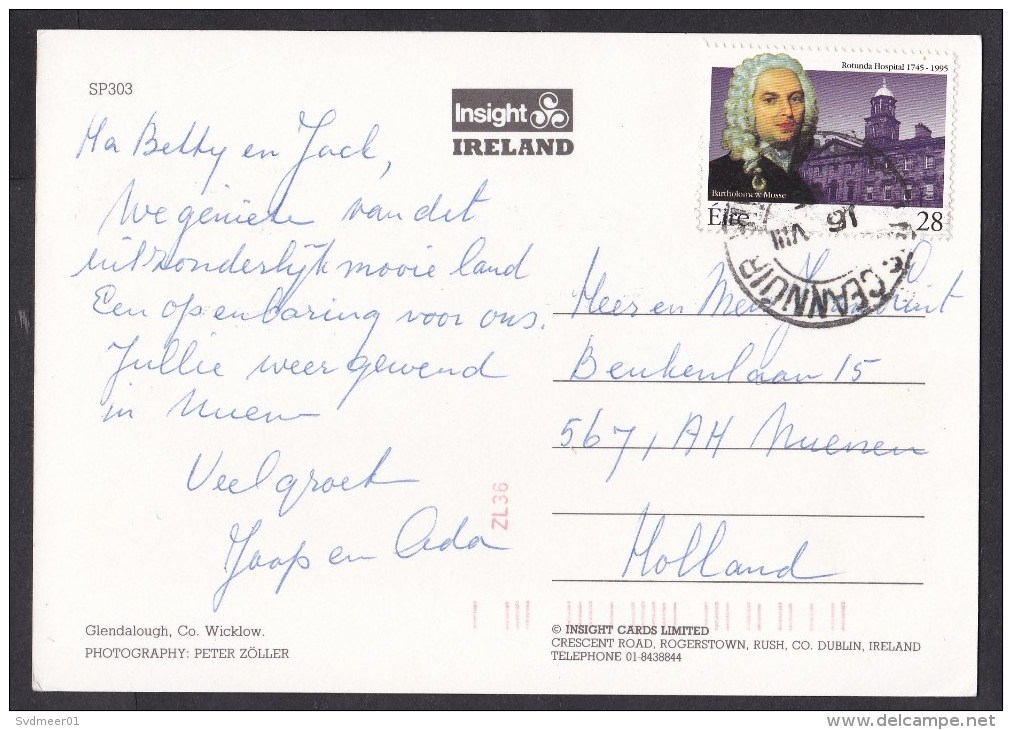 SP303
Insight
IRELAND
Rotunda Hospital 1745 - 1995
Bartholomew Mosse
Éire
28
VIII
CEANNUIR
Ha Betty en Jack,
We genieten van dit
uitzonderlijk mooie land
Een openbaring voor ons.
Jullie weer gewend
in Nuenen
Veel groet
Jaap en Ada
Heer en Mevr
Beukenlaan 15
5671 AH Nuenen
Holland
ZL36
Glendalough, Co. Wicklow.
PHOTOGRAPHY: PETER ZÖLLER
© INSIGHT CARDS LIMITED
CRESCENT ROAD, ROGERSTOWN, RUSH, CO. DUBLIN, IRELAND
TELEPHONE 01-8438844
Svdmeer01
delcampe.net